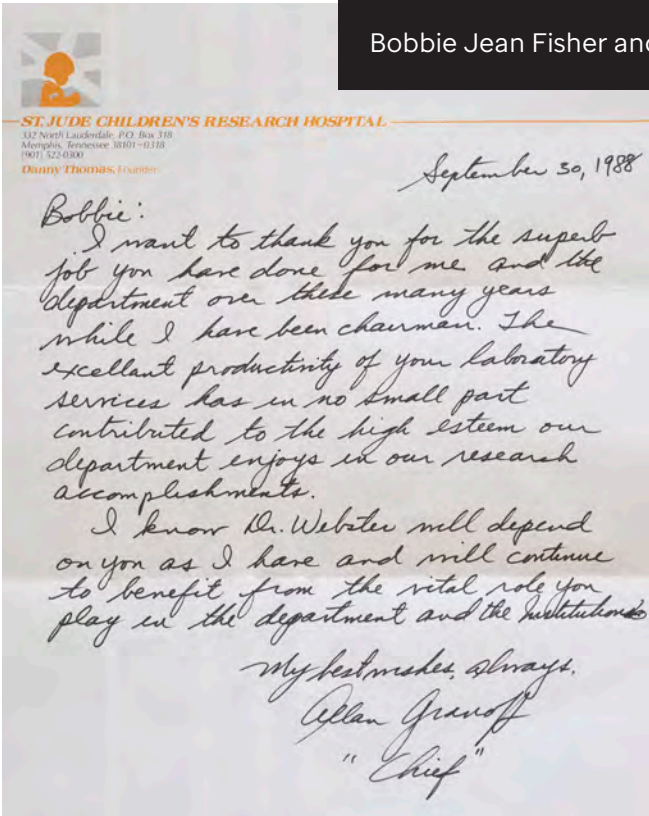 Bobbie Jean Fisher an
ST. JUDE CHILDREN'S RESEARCH HOSPITAL
332 North Lauderdale, P.O. Box 318
Memphis, Tennessee 38101-0318
(901) 522-0300
Danny Thomas, Founder
September 30, 1988
Bobbie:
I want to thank you for the superb
job you have done for me and the
department over these many years
while I have been chairman. The
excellant productivity of your laboratory
services has in no small part
contributed to the high esteem our
department enjoys in our research
accomplishments.
I know Dr. Webster will depend
on you as I have and will continue
to benefit from the vital role you
play in the department and the
My best wishes, always.
Allan Granoff
"Chief"